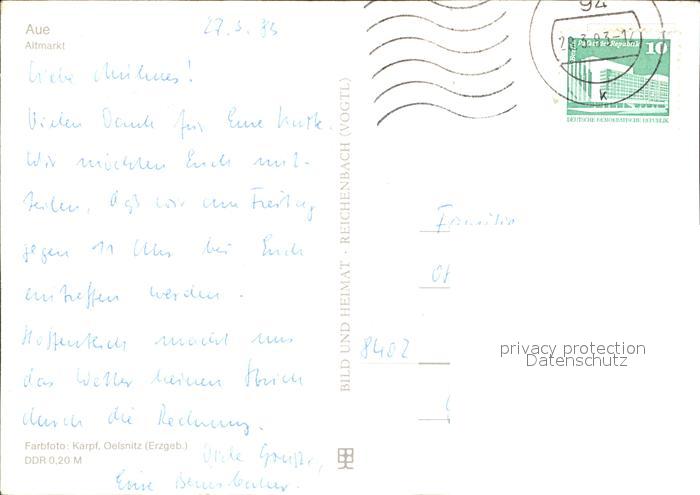 Aue
Altmarkt
27.3.83
Liebe
Vielen Dank für Eure Karte.
Wir möchten Euch mit-
teilen, daß wir am Freitag
gegen 11 Uhr bei Euch
eintreffen werden.
Hoffentlich macht uns
das Wetter keinen Strich
durch die Rechnung.
Viele Grüße,
Eure
Farbfoto: Karpf, Oelsnitz (Erzgeb.)
DDR 0,20 M
BILD UND HEIMAT · REICHENBACH (VOGTL)
94
28.3.83-17
k
Palast der Republik
10
DEUTSCHE DEMOKRATISCHE REPUBLIK
Familie
8402
privacy protection
Datenschutz